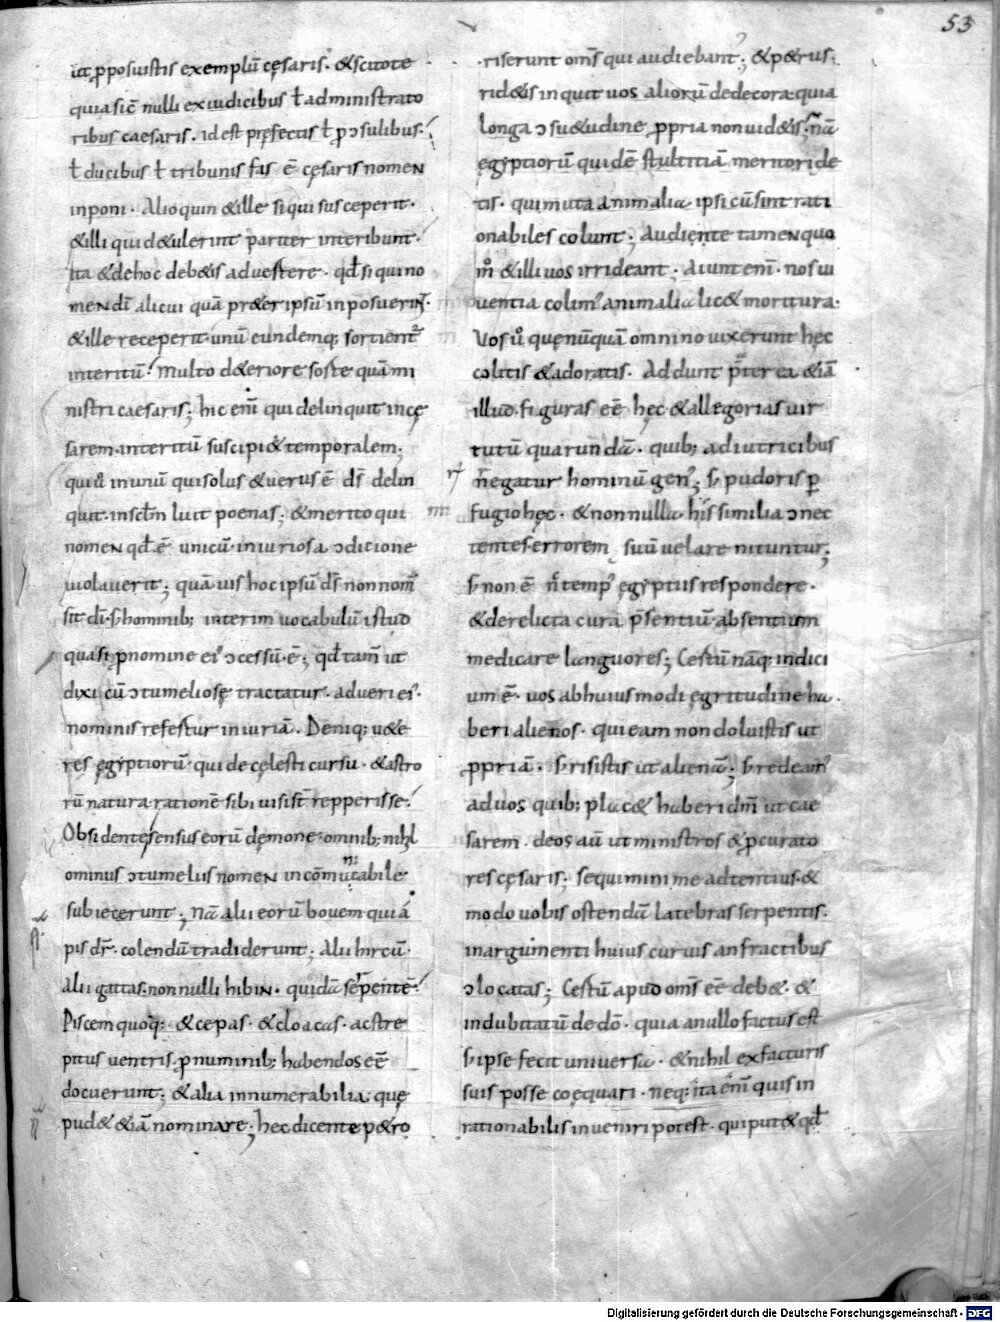 53
ut ꝓposuistis exemplū cęsaris. &scitote
quia sic̄ nulli ex iudicibus ł administrato
ribus caesaris. id est pręfectis ł ꝓↄsulibus.
ł ducibus ł tribunis fas ē cęsaris nomen
inponi. Alioquin &ille si qui susceperit.
&illi qui d&ulerint pariter interibunt.
ita &de hoc deb&is aduertere. qđ si qui no
men dī alicui quā pr&er ipsū inposuerint.
&ille receperit. unū eundemq; sortient᷑
interitū. multo d&eriore sorte quā mi
nistri caesaris; hic enī qui delinquit in cę
sarem. interitū suscipi& temporalem.
qui uͦ in unū qui solus &uerus ē ds̄ delin
quit. in sc̄tm̄ luit poenas; &merito qui
nomen qđ ē unicū. iniuriosa ↄdicione
uiolauerit; quā uis hoc ipsū ds̄ non nom̄
sit dī. ꝼ hominib; interim uocabulū istud
quasi ꝓnomine ei᾽ ↄcessū ē; qđ tam̄ ut
dixi cū ↄtumeliosę tractatur. ad ueri ei᾽
nominis refertur iniuriā. Deniq; u&e
res ęgyptiorū qui de cęlesti cursu. &astro
rū natura. rationē sibi uisi st̄ repperisse.
Obsidente sensus eorū dęmone. omnib; nihl
ominus ↄtumeliis nomen incōmutabile
subiecerunt; Nā alii eorū bouem. qui a
pis dr̄. colendū tradiderunt; Alii hircū.
Alii gattas. nonnulli hibin. quidā serpentē.
Piscem quoq;. &cepas. &cloacas. ac stre
pitus uentris. ꝓ numinib; habendos eē
docuerunt; &alia innumerabilia. que
pud& &iā nominare; hec dicente p&ro
riserunt om̄s qui audiebant; &p&rus.
rid&is inquit uos aliorū dedecora. quia
longa ↄsu&udine ꝓpria non uid&is; nā
ęgyptiorū quidē stultitiā merito ride
tis. qui muta animalia ipsi cū sint rati
onabiles colunt; Audiente tamen quo
m̊ &illi uos irrideant. Aiunt enī. nos ui
uentia colim᾽ animalia lic& moritura.
Vos uͦ quę nūquā omnino uixerunt hęc
colitis &adoratis. Addunt p̄ter ea &iā
illud. figuras eē hęc &allegorias uir
tutū quarundā. quib; adiutricibus
regatur hominū gen᾽; ꝼ pudoris ꝑ
fugio hęc. &nonnulla his similia ↄnec
tentes errorem suū uelare nituntur;
ꝼ non ē n̄ temp᾽ ęgyptiis respondere.
&derelicta cura p̄sentiū. absentium
medicare languores; Certū nāq; indici
um ē. uos ab huiusmodi ęgritudine ha
beri alienos. qui eam non doluistis ut
ꝓpriā. ꝼ risistis ut alienā; ꝼ redeam᾽
ad uos quib; plac& haberi dm̄ ut cae
sarem. deos aū ut ministros &ꝓcurato
res cęsaris; sequimini me adtentius. &
modo uobis ostendā latebras serpentis.
in argumenti huius curuis anfractibus
ↄlocatas; Certū apud om̄s eē deb&. &
indubitatū de dō. quia a nullo factus est
ꝼ ipse fecit uniuersa. &nihil ex facturis
suis posse coęquari. neq; ita enī quis in
rationabilis inueniri potest. qui put& qđ
Digitalisierung gefördert durch die Deutsche Forschungsgemeinschaft - DFG